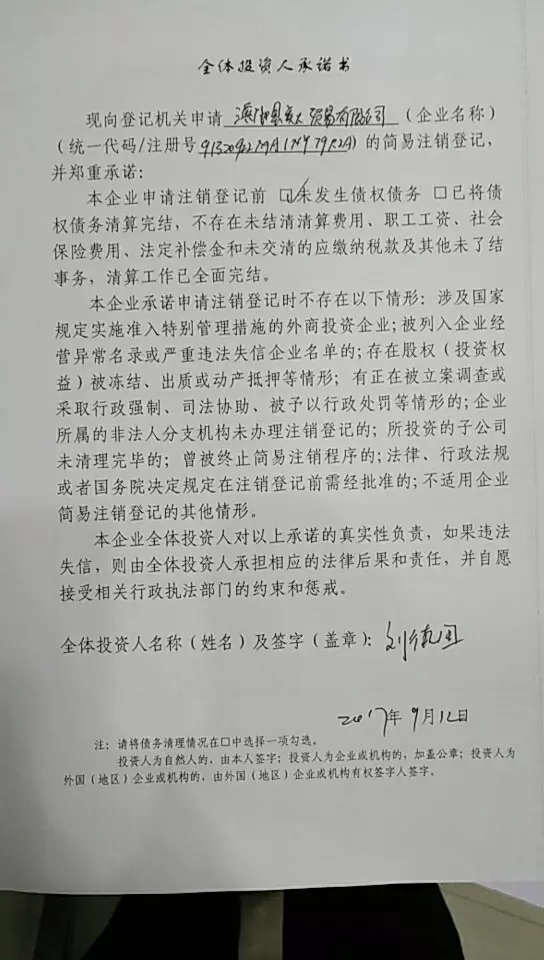 全体投资人承诺书
现向登记机关申请 滨海县 贸易有限公司 (企业名称)
(统一代码/注册号91320922MA1NY79R2A)的简易注销登记,
并郑重承诺:
本企业申请注销登记前 ☑未发生债权债务 □已将债
权债务清算完结,不存在未结清清算费用、职工工资、社会
保险费用、法定补偿金和未交清的应缴纳税款及其他未了结
事务,清算工作已全面完结。
本企业承诺申请注销登记时不存在以下情形:涉及国家
规定实施准入特别管理措施的外商投资企业;被列入企业经
营异常名录或严重违法失信企业名单的;存在股权(投资权
益)被冻结、出质或动产抵押等情形; 有正在被立案调查或
采取行政强制、司法协助、被予以行政处罚等情形的;企业
所属的非法人分支机构未办理注销登记的; 所投资的子公司
未清理完毕的; 曾被终止简易注销程序的;法律、行政法规
或者国务院决定规定在注销登记前需经批准的;不适用企业
简易注销登记的其他情形。
本企业全体投资人对以上承诺的真实性负责,如果违法
失信,则由全体投资人承担相应的法律后果和责任,并自愿
接受相关行政执法部门的约束和惩戒。
全体投资人名称(姓名)及签字(盖章): 刘德
2017年9月12日
注: 请将债务清理情况在□中选择一项勾选。
投资人为自然人的,由本人签字;投资人为企业或机构的,加盖公章;投资人为
外国(地区)企业或机构的,由外国(地区)企业或机构有权签字人签字。